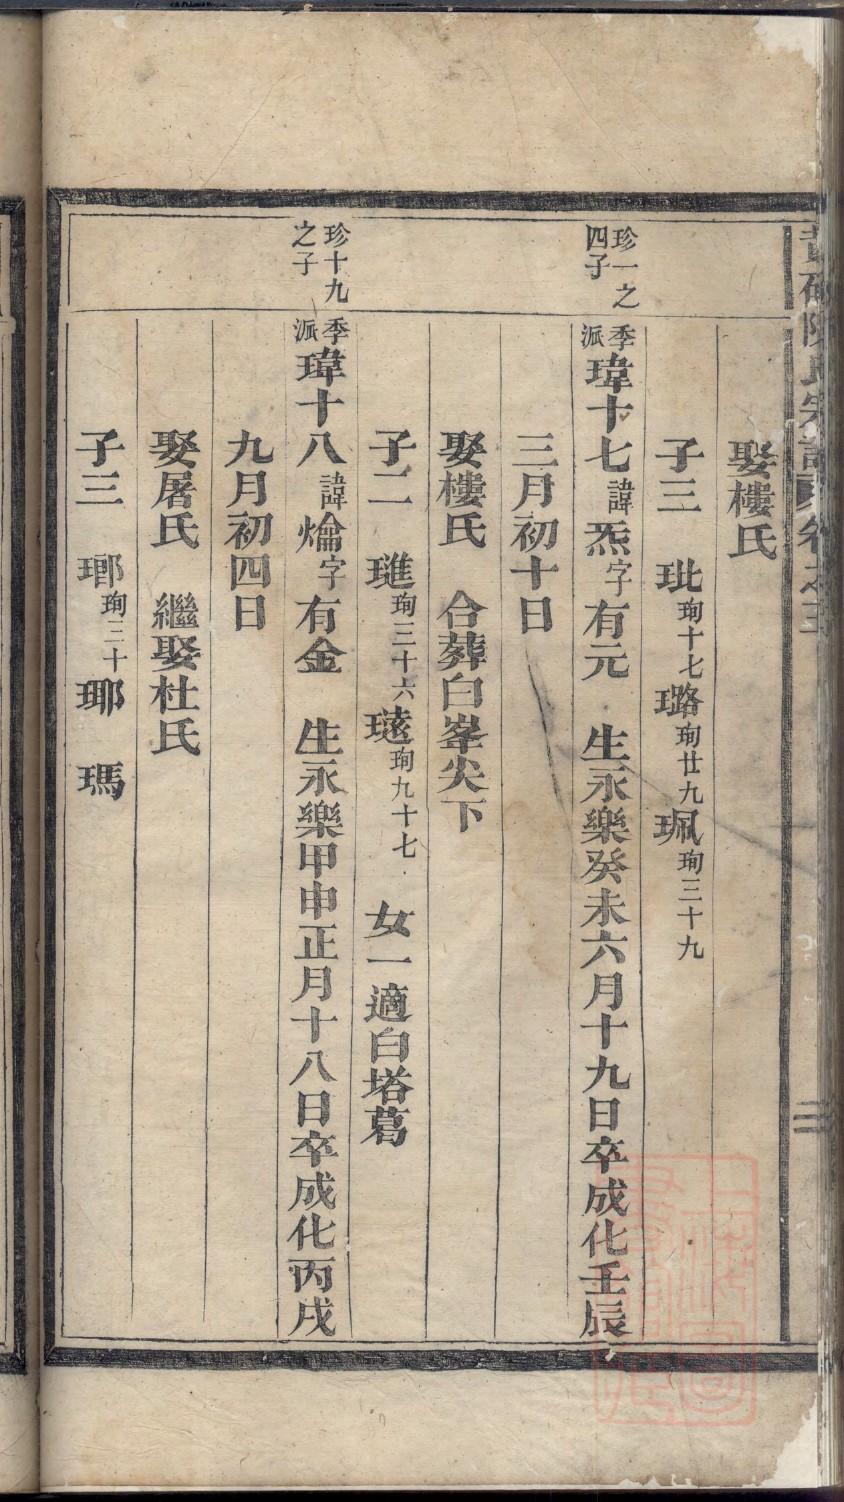 陳氏宗譜 卷之三
娶樓氏
子三 玭珣十七璐珣廿九珮珣三十九
珍一之四子
季派瑋十七諱炁字有元 生永樂癸未六月十九日卒成化壬辰
三月初十日
娶樓氏 合葬白峯尖下
子二 璡珣三十六珣九十七 女一適白塔葛
珍十九之子
季派瑋十八諱爚字有金 生永樂甲申正月十八日卒成化丙戌
九月初四日
娶屠氏 繼娶杜氏
子三 瑯珣三十瑘 瑪